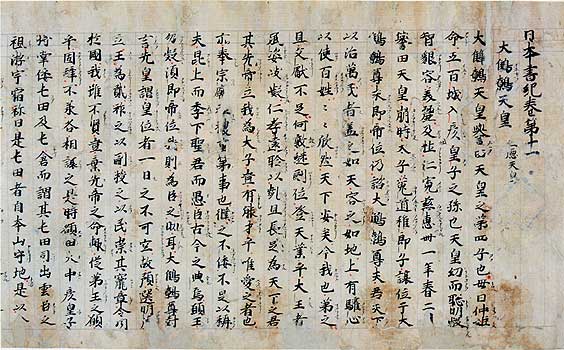 日本書紀巻第十一
大鷦鷯天皇
大鷦鷯天皇譽田天皇之第四子也母曰仲姬
命五百城入彥皇子之孫也天皇幼而聰明叡
智貌容美麗及壯仁寬慈惠卌一年春二
譽田天皇崩時太子菟道稚郎子讓位于大
鷦鷯尊未即帝位仍諮大鷦鷯尊夫君天下
以治萬民者蓋之如天容之如地上有驩心
以使百姓〻〻欣然天下安矣今我也弟之
且文獻不足何敢繼嗣位登天業乎大王者
風姿岐嶷仁孝遠聆以齒且長足為天下之君
其先帝立我為太子豈有能才乎唯愛之者也
亦奉宗廟重事也僕之不佞不足以稱
夫昆上而季下聖君而愚臣古今之典焉願王
勿疑須即帝位我則為臣之助耳大鷦鷯尊對
言先皇謂皇位者一日之不可空故預選明
立王為貳祚之以嗣授之以民崇其寵章令聞
於國我雖不賢豈棄先帝之命輙從弟王之願
乎固辭不承各相讓之是時額田大中彥皇子
將掌倭屯田及屯倉而謂其屯田司出雲臣之
祖淤宇宿祢曰是屯田者自本山守地是以